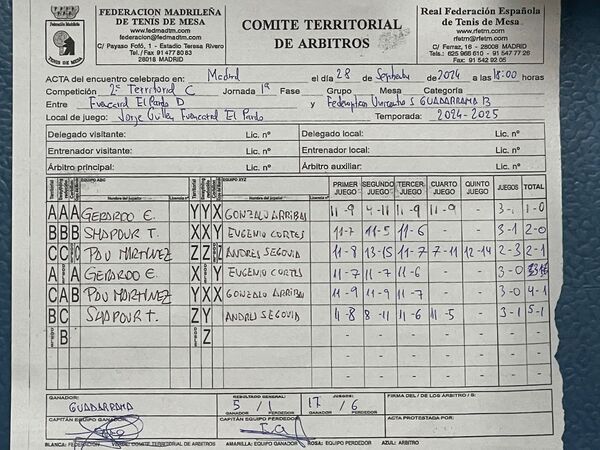 FEDERACION MADRILEÑA
DE TENIS DE MESA
www.fedmadtm.com
federacion@fedmadtm.com
C/ Payaso Fofó, 1 - Estadio Teresa Rivero
Tel./Fax 91 477 80 83
28018 MADRID
TENIS DE MESA
COMITE TERRITORIAL
DE ARBITROS
Real Federación Española
de Tenis de Mesa
www.rfetm.com
rfetm@rfetm.com
C/ Ferraz, 16 - 28008 MADRID
ACTA del encuentro celebrado en: Madrid el día 28 de Septiembre de 2024 a las 18:00 horas
Competición 2ª Territorial C Jornada 1ª Fase Grupo Mesa Categoría
Entre Fuencarral El Pardo D y GUADARRAMA B
Local de juego: Jorge Fuencarral El Pardo Temporada: 2024-2025
Delegado visitante: Lic. nº Delegado local: Lic. nº
Entrenador visitante: Lic. nº Entrenador local: Lic. nº
Árbitro principal: Lic. nº Árbitro auxiliar: Lic. nº
EQUIPO ABC Nombre del jugador Licencia nº EQUIPO XYZ Nombre del jugador Licencia nº PRIMER JUEGO SEGUNDO JUEGO TERCER JUEGO CUARTO JUEGO QUINTO JUEGO JUEGOS TOTAL
A A A GERARDO E. Y Y X GONZALO ARRIBAS 11-9 4-11 11-9 11-9 - 3-1 1-0
B B B SHAPOUR T. X X Y EUGENIO CORTES 11-7 11-5 11-6 - - 3- 2-0
C C C PAU MARTINEZ Z Z Z ANDRES SEGOVIA 11-8 13-15 11-7 7-11 12-14 2-3 2-1
A A GERARDO E. X Y EUGENIO CORTES 11-7 11-7 11-6 - - 3-0
C A B PAU MARTINEZ Y X X GONZALO ARRIBAS 11-9 11-9 11-7 - - 3-0 4-1
B C SHAPOUR T. Z Y ANDRES SEGOVIA 11-8 8-11 11-6 11-5 - 3-1 5-1
B Z - - - - - - -
GANADOR: GUADARRAMA RESULTADO GENERAL: 5 / 1 JUEGOS: 17 / 6 FIRMA DEL / DE LOS ÁRBITRO / S:
GANADOR PERDEDOR GANADOR PERDEDOR
CAPITÁN EQUIPO GANADOR CAPITÁN EQUIPO PERDEDOR ACTA PROTESTADA POR:
BLANCA: FEDERACIÓN VERDE: COMITE TERRITORIAL DE ARBITROS AMARILLA: EQUIPO GANADOR ROSA: EQUIPO PERDEDOR AZUL: ARBITRO